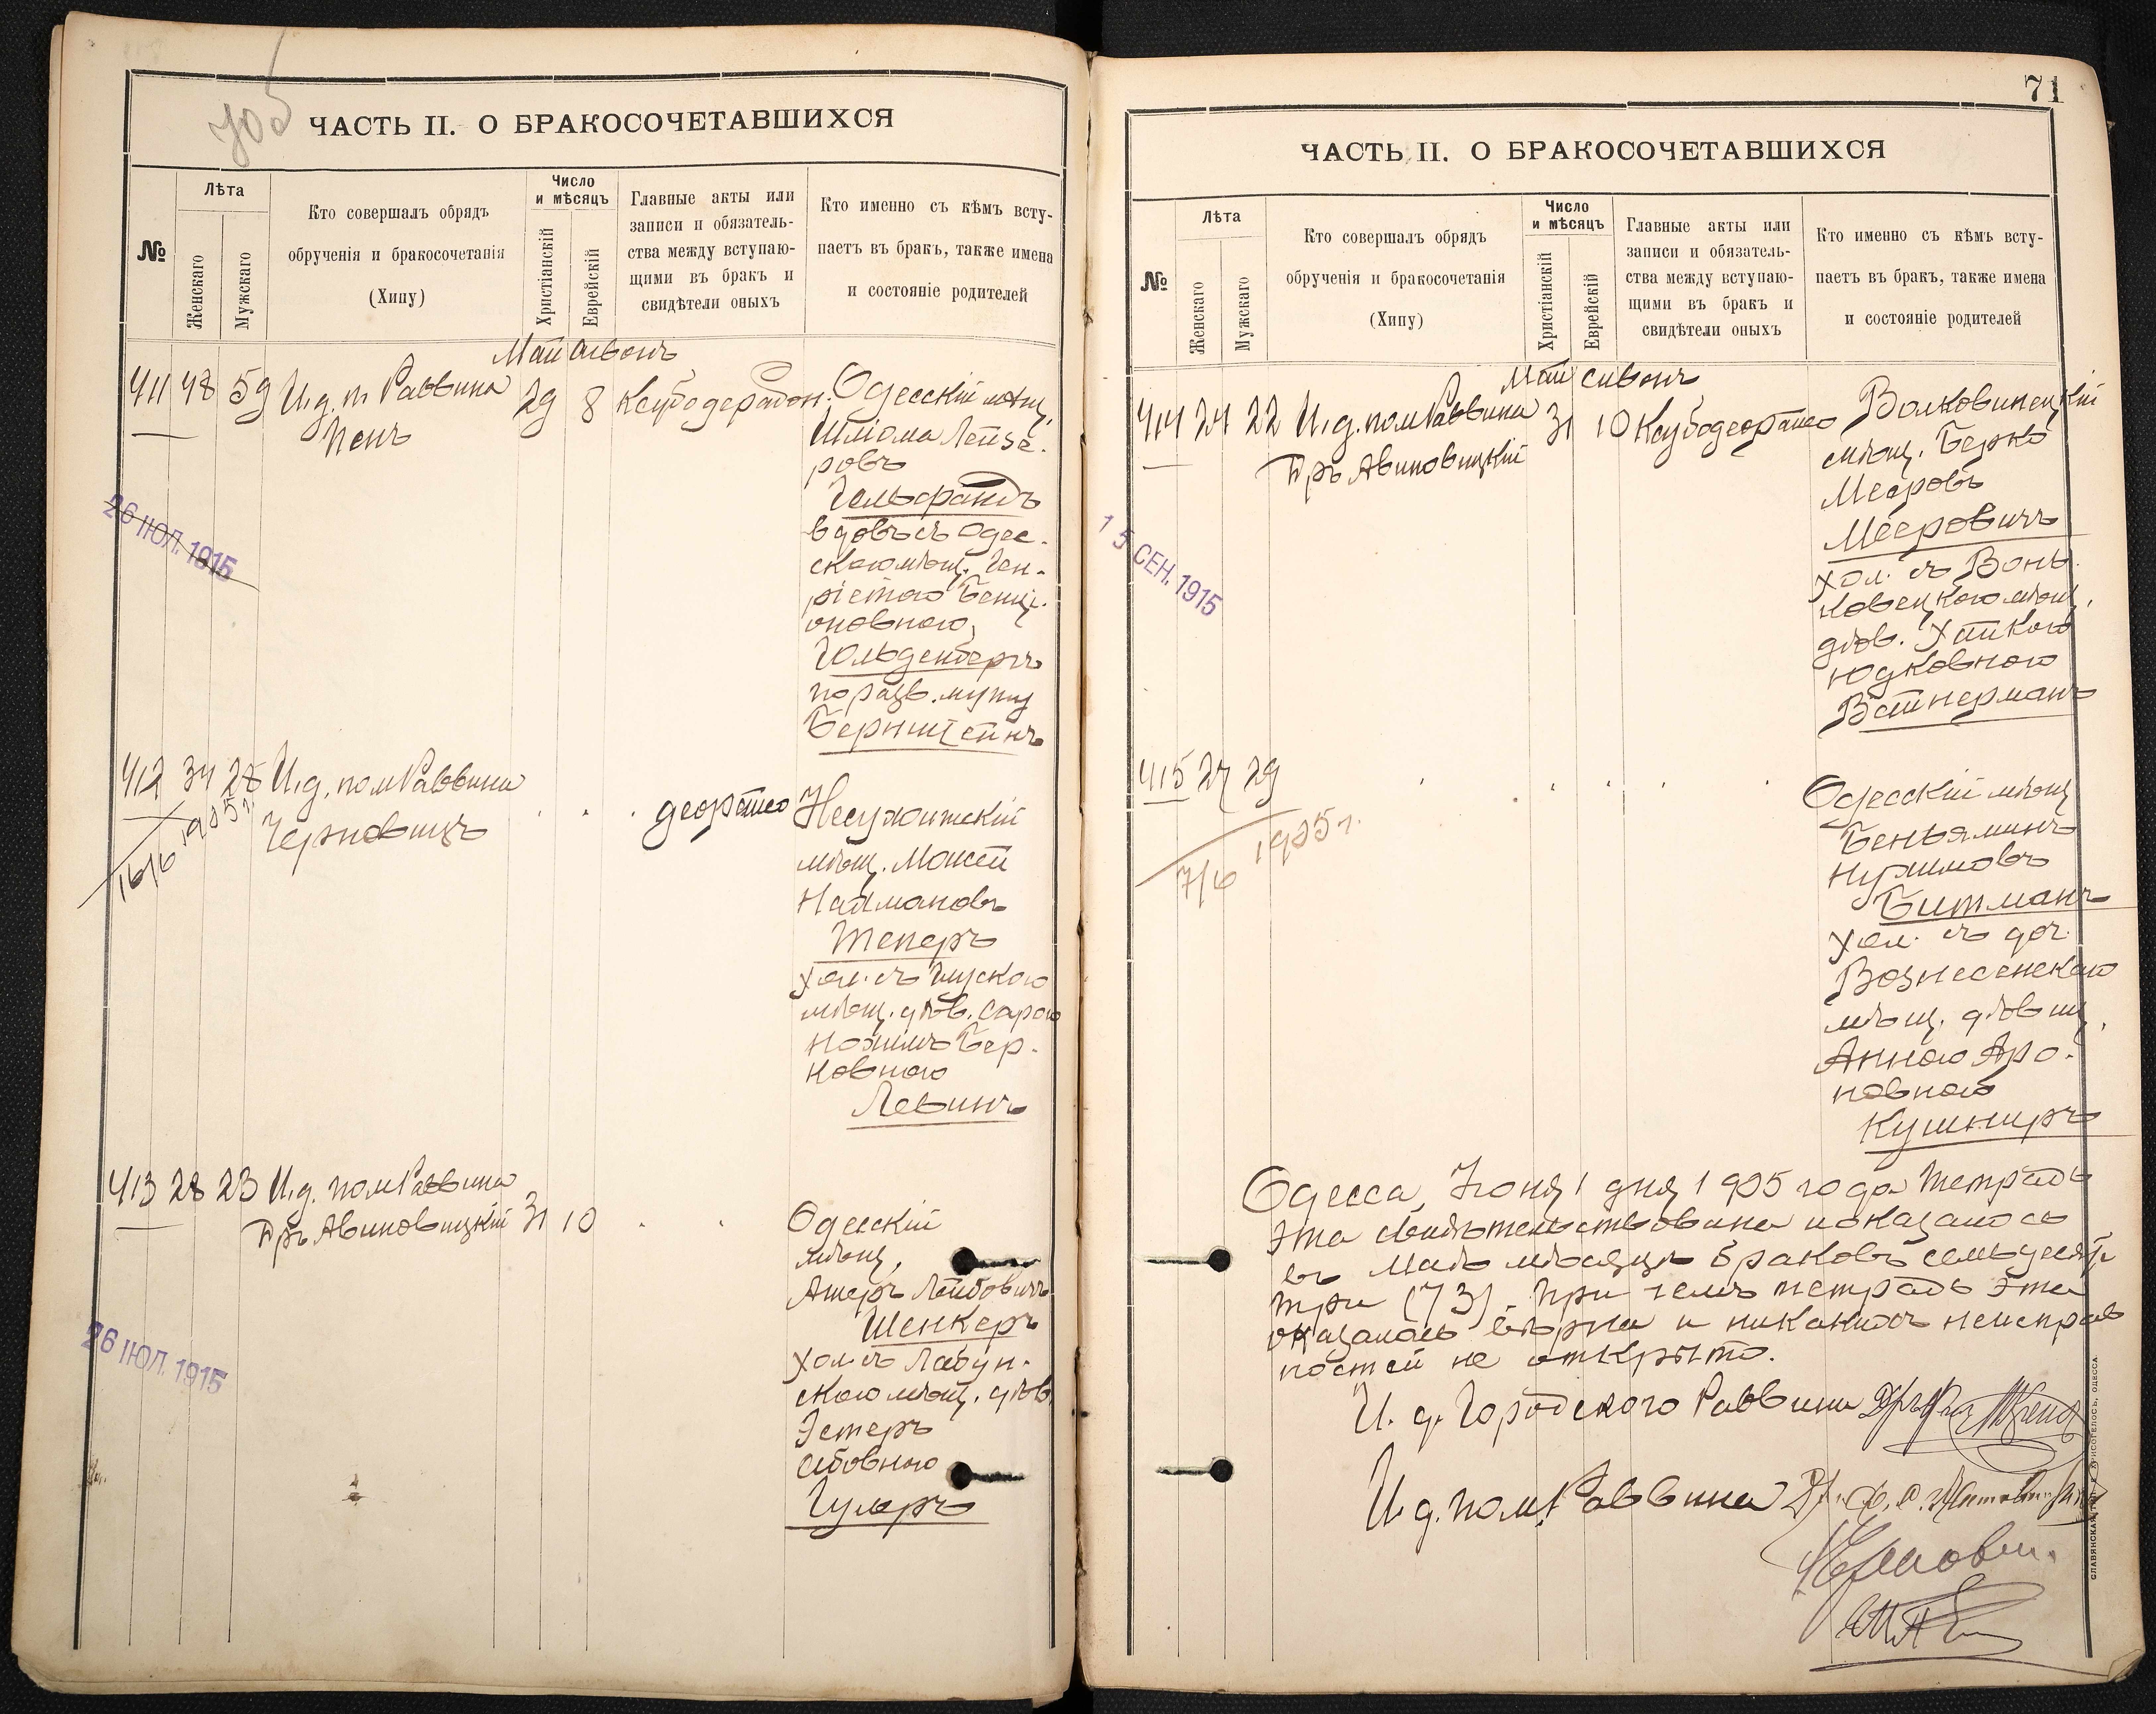 705
ЧАСТЬ II. О БРАКОСОЧЕТАВШИХСЯ
№
Лѣта
Женскаго
Мужскаго
Кто совершалъ обрядъ
обрученія и бракосочетанія
(Хипу)
Число
и мѣсяцъ
Христіанскій
Еврейскій
Главные акты или
записи и обязатель-
ства между вступаю-
щими въ бракъ и
свидѣтели оныхъ
Кто именно съ кѣмъ всту-
паетъ въ бракъ, также имена
и состояніе родителей
Май Сивонъ
411 48 59 И.д. п. Раввина 29 8
Пенъ
Одесскій мѣщ.
Шлiома Лейзе-
ровъ
Гельфандъ
вдовъ съ Одес-
скою мѣщ. Ген-
ріетою Бенці-
оновною
Гольденбергъ
по разв. мужу
Бернштейнъ
26 ІЮЛ. 1915
412 34 28 И.д. пом Раввина
Черновицъ
16/6 1905 г.
мѣщ. Моисей
Наймановъ
Теперъ
хол. съ
мѣщ. дѣв. Сарою
Бер-
ковною
Левинъ
413 28 23 И.д. пом Раввина
Дръ Авиновицкій 31 10
Одесскій
мѣщ.
Ашеръ Лейбовичъ
Шенкеръ
хол. съ Лабун-
скою мѣщ. дѣв.
Эстеръ
Гулеръ
26 ІЮЛ. 1915
71
ЧАСТЬ II. О БРАКОСОЧЕТАВШИХСЯ
№
Лѣта
Женскаго
Мужскаго
Кто совершалъ обрядъ
обрученія и бракосочетанія
(Хипу)
Число
и мѣсяцъ
Христіанскій
Еврейскій
Главные акты или
записи и обязатель-
ства между вступаю-
щими въ бракъ и
свидѣтели оныхъ
Кто именно съ кѣмъ всту-
паетъ въ бракъ, также имена
и состояніе родителей
Май Сивонъ
414 24 22 И.д. пом Раввина 31 10
Дръ Авиновицкій
Волковинецкій
мѣщ. Берко
Мееровъ
Мееровичъ
хол. съ Вонь-
ковецкою мѣщ.
дѣв. Хайкою
Юдковною
Вайнерманъ
15 СЕН. 1915
415 27 29
7/6 1905 г.
Одесскій мѣщ
Беньяминъ
Нухимовъ
Битманъ
хол. съ доч.
Вознесенскаго
мѣщ. дѣвиц.
Анною Аро-
новною
Кушниръ
Одесса, Іюня 1 дня 1905 года Тетрадь
эта свидѣтельствована и оказалось
въ Маѣ мѣсяцѣ браковъ семьдесятъ
три (73) При чемъ тетрадь эта
оказалась вѣрна и никакихъ неисправ
ностей не открыто.
И. д. Городского Раввина
И. д. пом. Раввина
СЛАВЯНСКАЯ ТИП. Е. ХРИСОГЕЛОСЪ, ОДЕССА